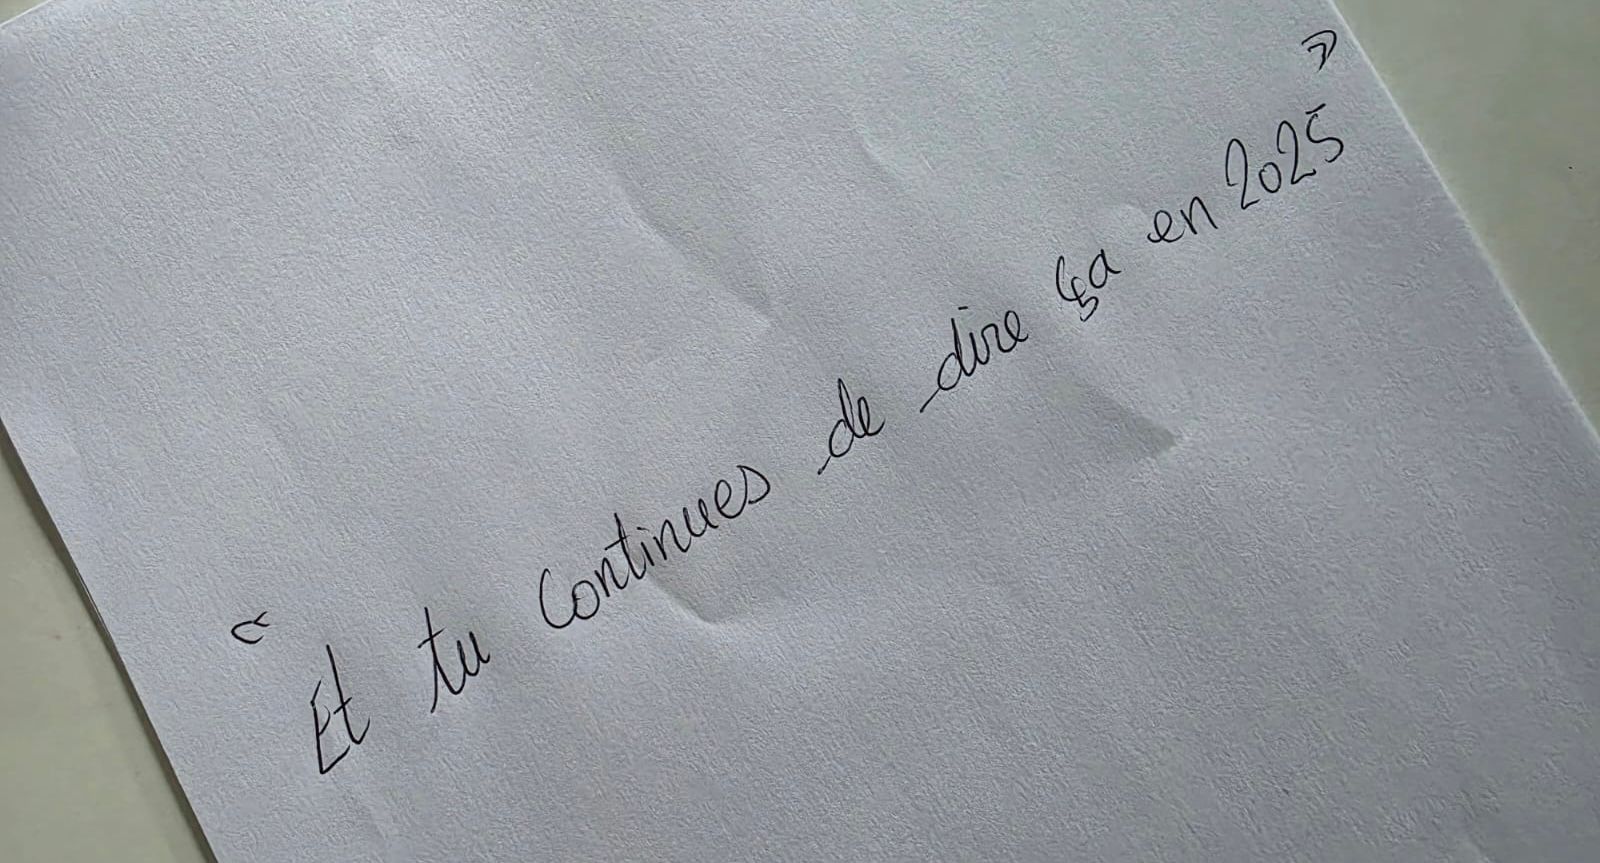 « Et tu continues de dire ça en 2025 »